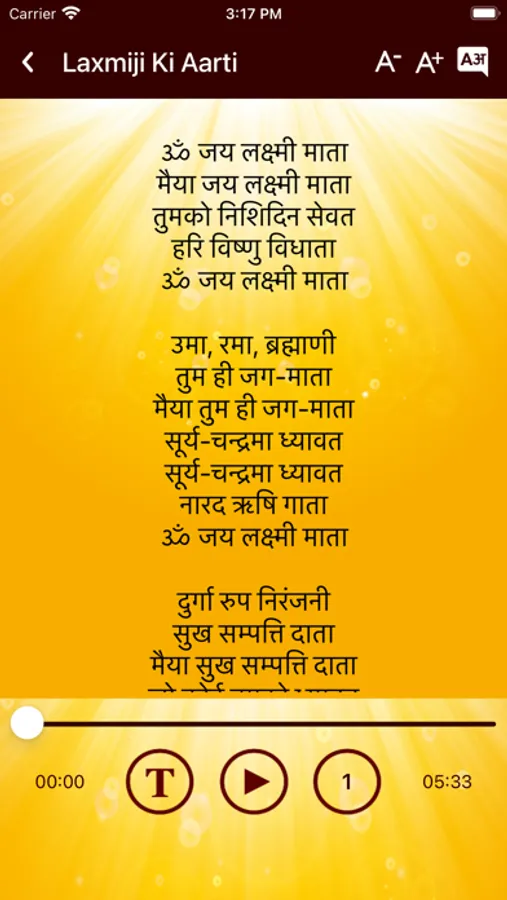 Carrier 3:17 PM
Laxmiji Ki Aarti A- A+ Aअ
ॐ जय लक्ष्मी माता
मैया जय लक्ष्मी माता
तुमको निशिदिन सेवत
हरि विष्णु विधाता
ॐ जय लक्ष्मी माता
उमा, रमा, ब्रह्माणी
तुम ही जग-माता
मैया तुम ही जग-माता
सूर्य-चन्द्रमा ध्यावत
सूर्य-चन्द्रमा ध्यावत
नारद ऋषि गाता
ॐ जय लक्ष्मी माता
दुर्गा रुप निरंजनी
सुख सम्पत्ति दाता
मैया सुख सम्पत्ति दाता
00:00 T 1 05:33